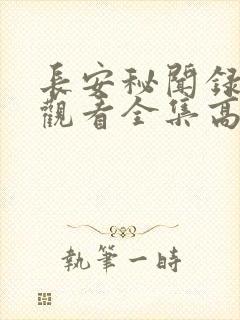 長安秘聞錄
觀看全集高
執筆一時